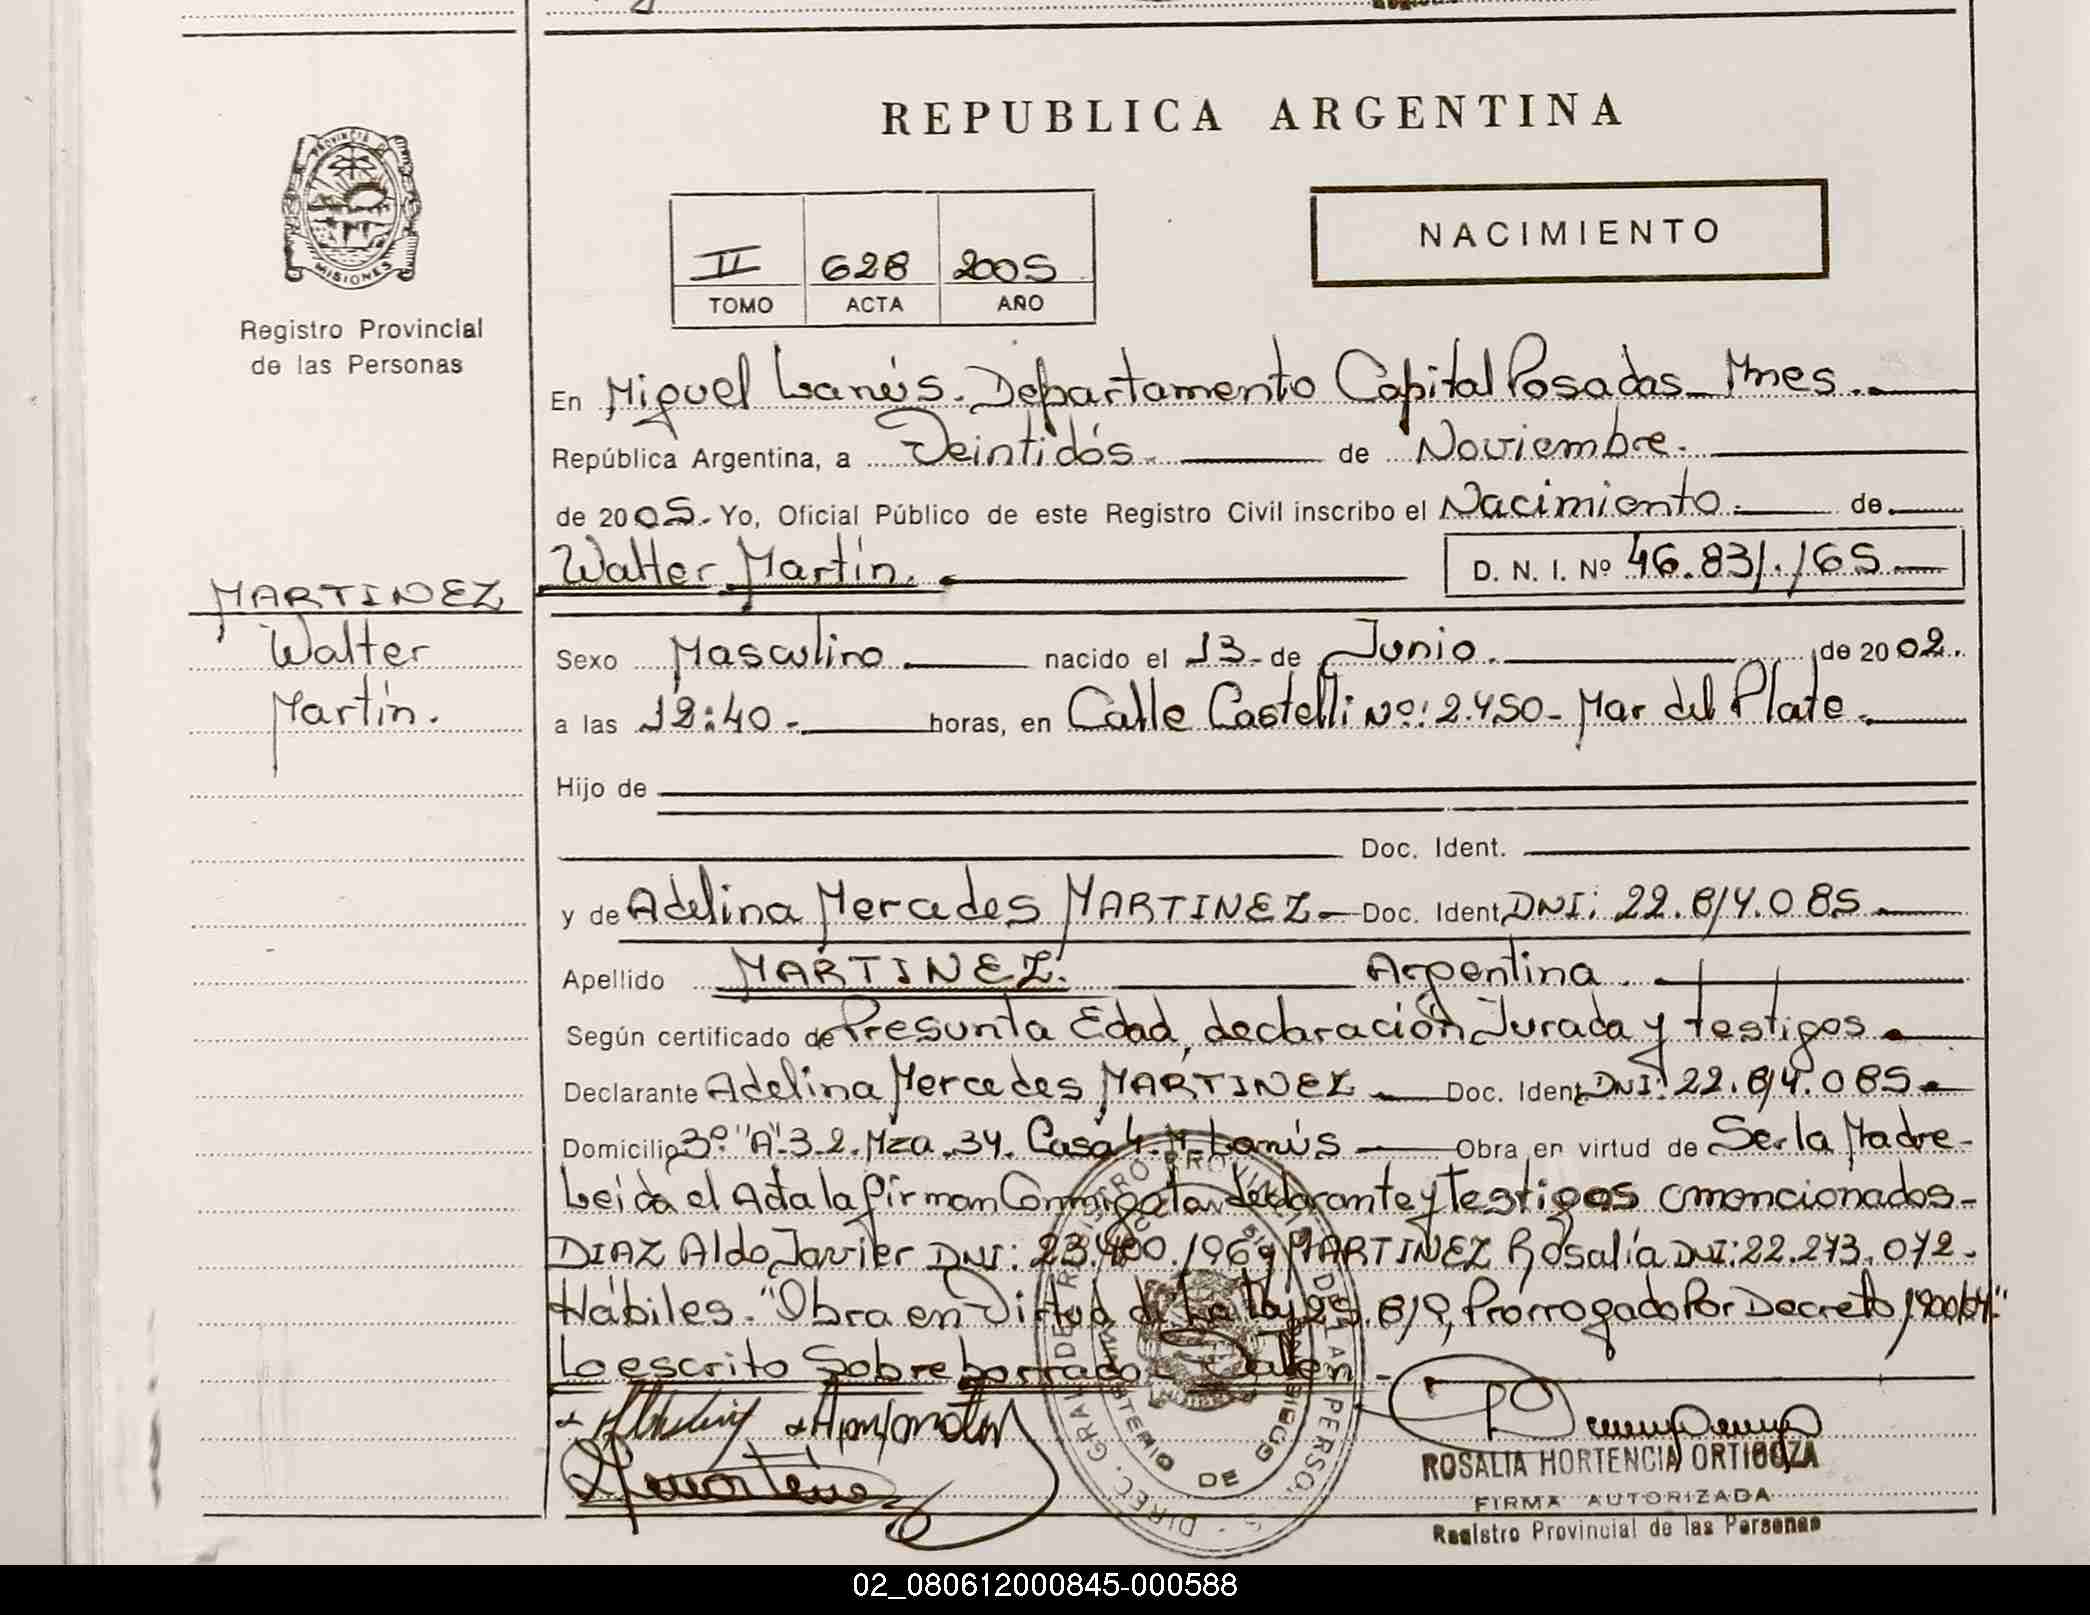 REPUBLICA ARGENTINA
PROVINCIA DE
MISIONES
Registro Provincial
de las Personas
NACIMIENTO
II 628 2005
TOMO ACTA AÑO
En Miguel Lanús. Departamento Capital Posadas - Mnes.
República Argentina, a Veintidós de Noviembre.
de 2005. Yo, Oficial Público de este Registro Civil inscribo el Nacimiento. de
Walter Martín. D. N. I. Nº 46.831.165
MARTINEZ
Walter
Martín.
Sexo Masculino nacido el 13 de Junio. de 2002.
a las 12:40 - horas, en Calle Castelli Nº: 2.450 - Mar del Plate.
Hijo de
Doc. Ident.
y de Adelina Mercedes MARTINEZ - Doc. Ident. DNI: 22.814.085
Apellido MARTINEZ. Argentina.
Según certificado de Presunta Edad, declaración Jurada y testigos.
Declarante Adelina Mercedes MARTINEZ Doc. Ident. DNI: 22.814.085
Domicilio 3º "A" 32. Mza. 34. Casa 4. M. Lanús Obra en virtud de Ser la Madre -
Leida el Acta la firman Conmigo la declarante y Testigos mencionados -
DIAZ Aldo Javier DNI: 23. MARTINEZ Rosalía DNI: 22.273.072 -
Hábiles. "Obra en Virtud de La Ley 25.819, Prorrogado Por Decreto 1900/04."
Lo escrito Sobre borrado - Valen -
DIREC. GRAL DE REGISTRO PROVINCIAL DE LAS PERSO
MINISTERIO DE GOBIERNO
ROSALIA HORTENCIA ORTIGOZA
FIRMA AUTORIZADA
Registro Provincial de las Personas
02_080612000845-000588